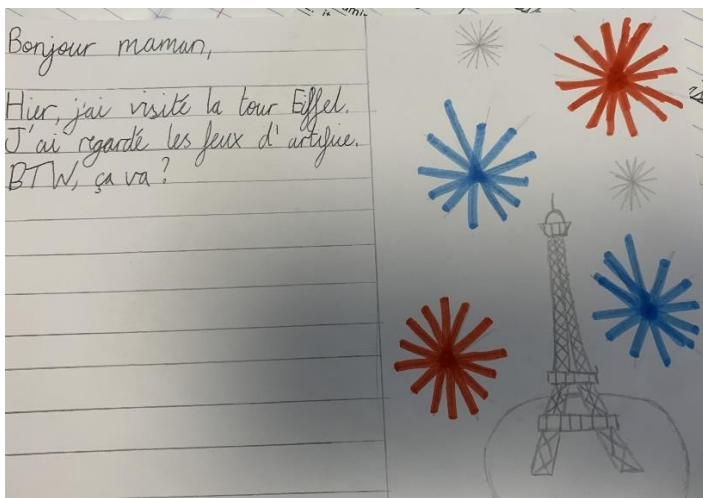 Bonjour maman,
Hier, j'ai visité la tour Eiffel.
J'ai regardé les feux d'artifice.
BTW, ça va?